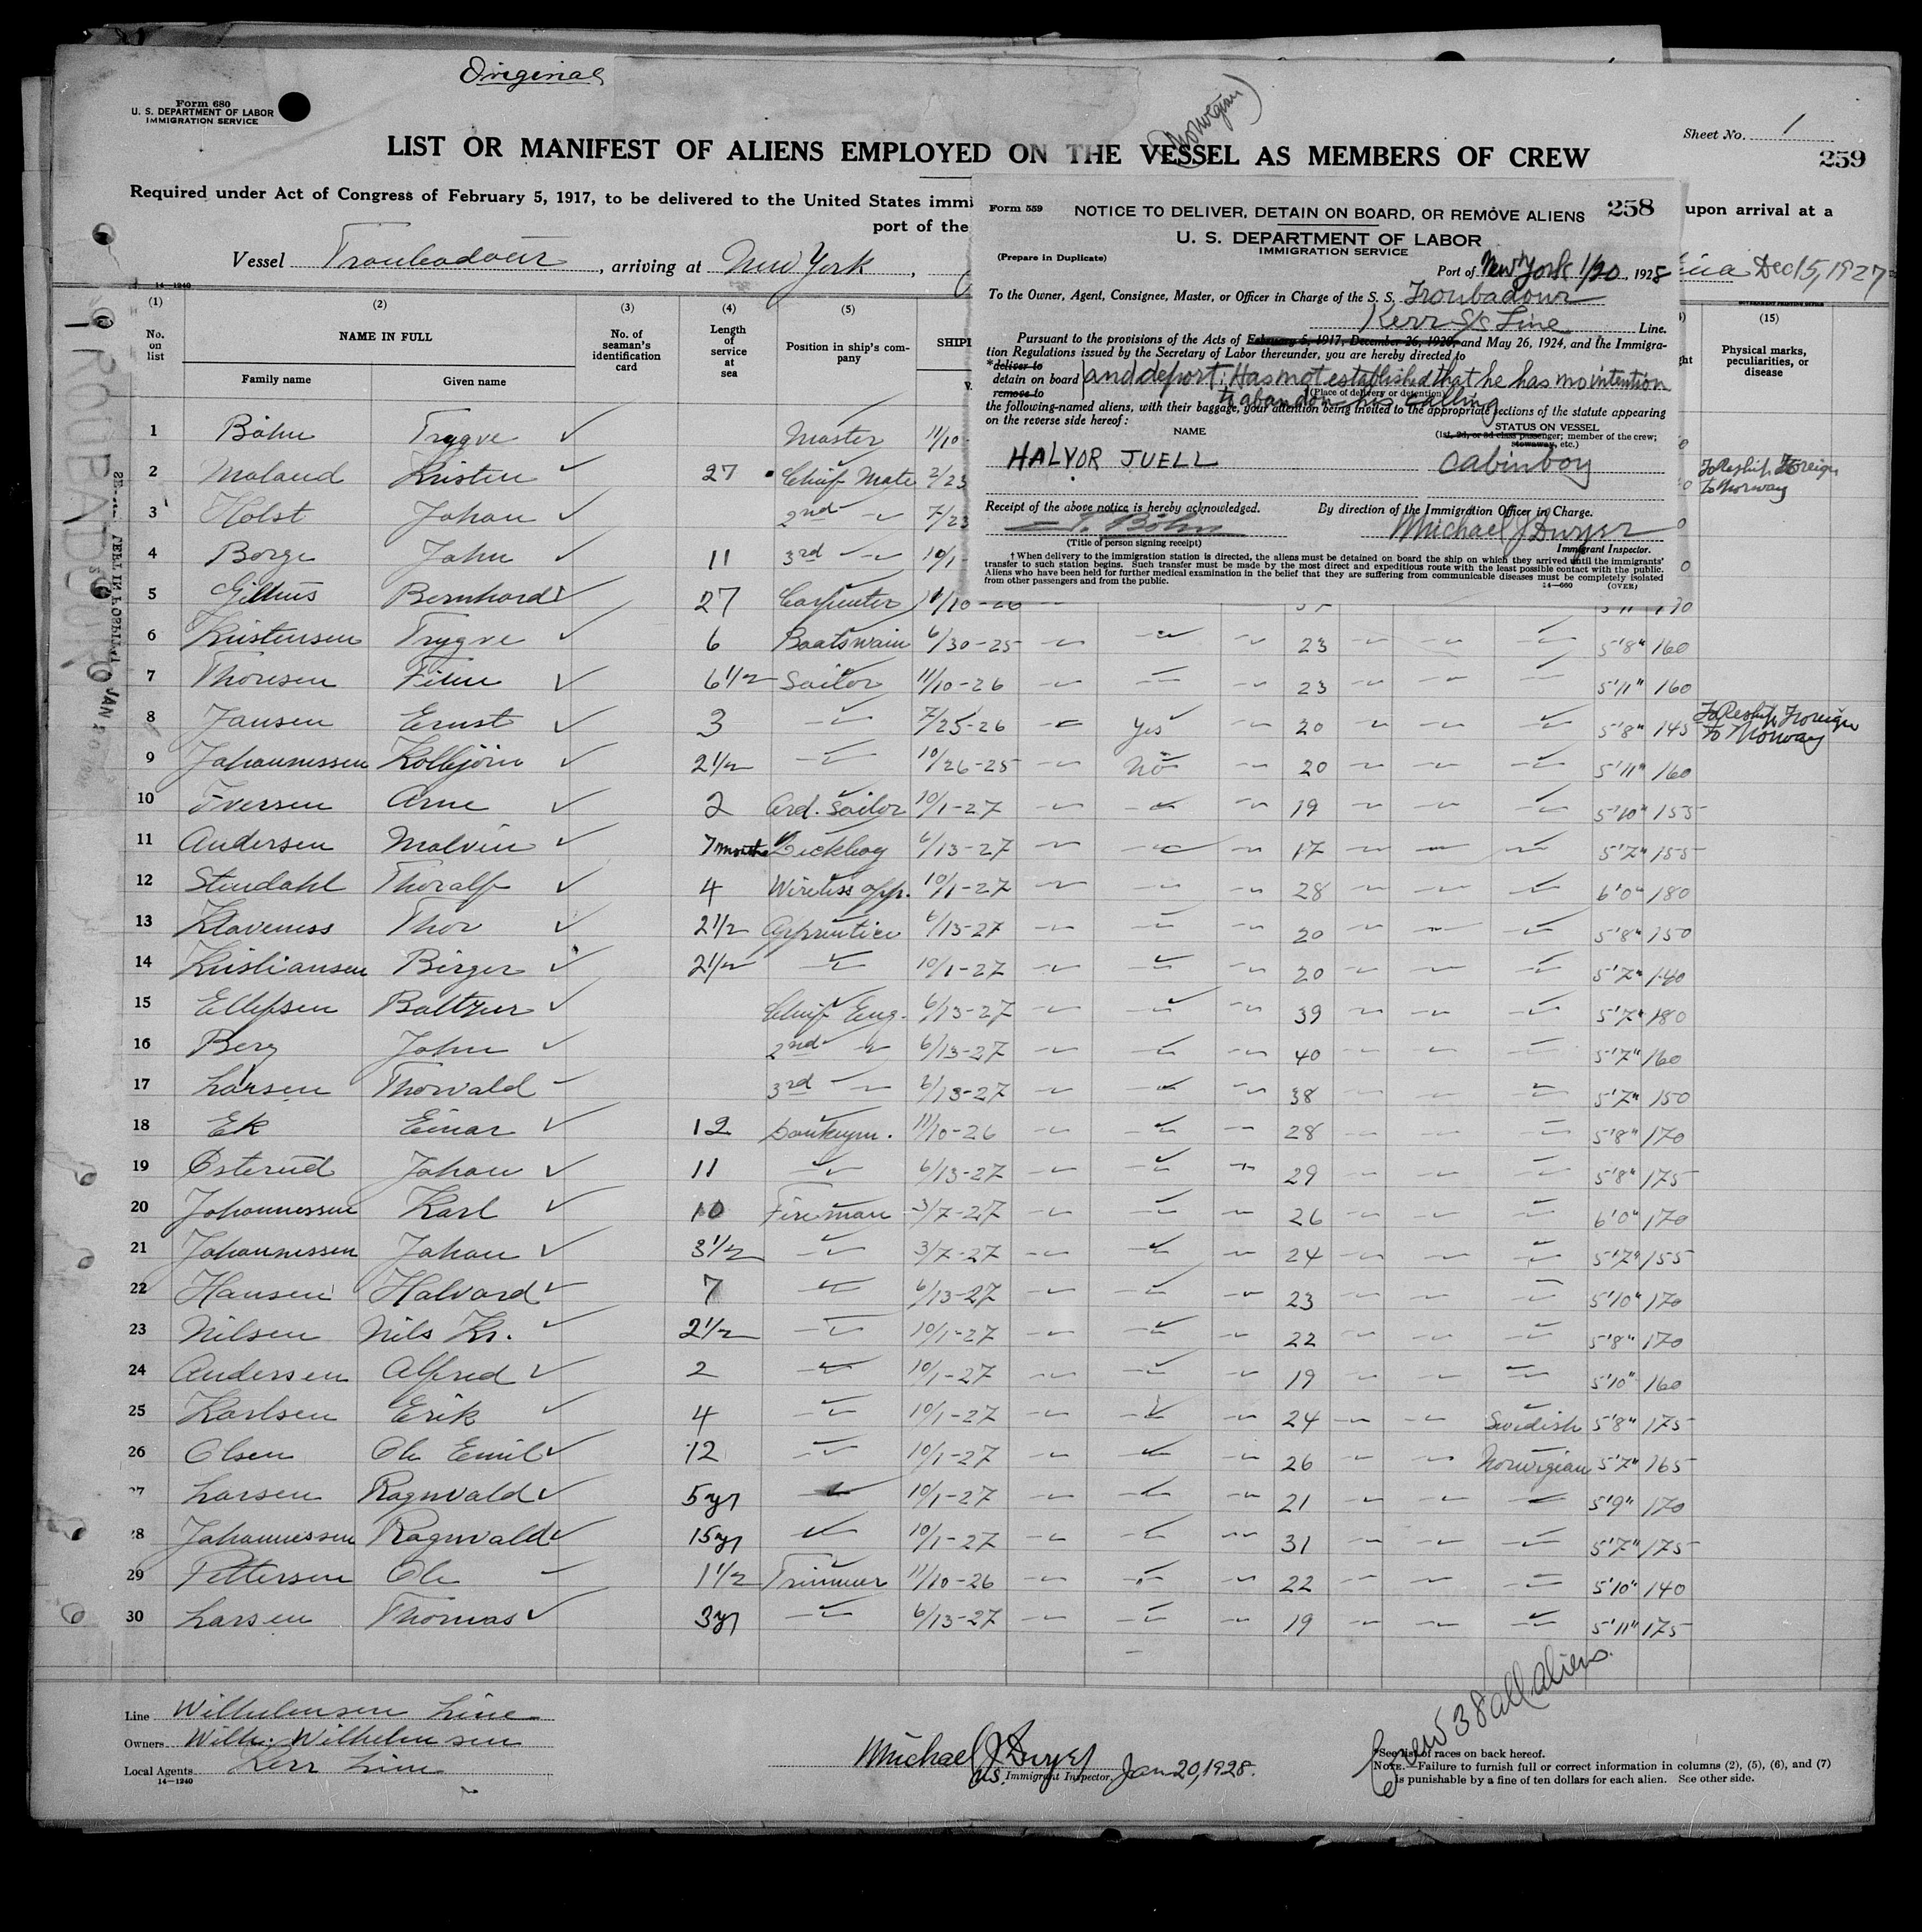 Original
Form 680
U. S. DEPARTMENT OF LABOR
IMMIGRATION SERVICE
(Norwegian)
Sheet No. 1
259
LIST OR MANIFEST OF ALIENS EMPLOYED ON THE VESSEL AS MEMBERS OF CREW
Required under Act of Congress of February 5, 1917, to be delivered to the United States immi
upon arrival at a
port of the
Vessel Troubadour, arriving at New York,
Dec 15, 1927
14—1240
Form 559
NOTICE TO DELIVER, DETAIN ON BOARD, OR REMOVE ALIENS 258
U. S. DEPARTMENT OF LABOR
IMMIGRATION SERVICE
(Prepare in Duplicate)
Port of New York 1/20, 1928
To the Owner, Agent, Consignee, Master, or Officer in Charge of the S. S. Troubadour
Kerr S/S Line Line.
Pursuant to the provisions of the Acts of February 5, 1917, December 26, 1920, and May 26, 1924, and the Immigra-
tion Regulations issued by the Secretary of Labor thereunder, you are hereby directed to
*deliver to
detain on board and deport; Has not established that he has no intention
remove to
(Place of delivery or detention)
to abandon his calling
the following-named aliens, with their baggage, your attention being invited to the appropriate sections of the statute appearing
on the reverse side hereof:
NAME
STATUS ON VESSEL
(1st, 2d, or 3d class passenger; member of the crew;
stowaway, etc.)
HALVOR JUELL cabinboy
Receipt of the above notice is hereby acknowledged. By direction of the Immigration Officer in Charge.
T. Böhn Michael J Dwyer
(Title of person signing receipt) Immigrant Inspector.
†When delivery to the immigration station is directed, the aliens must be detained on board the ship on which they arrived until the immigrants'
transfer to such station begins. Such transfer must be made by the most direct and expeditious route with the least possible contact with the public.
Aliens who have been held for further medical examination in the belief that they are suffering from communicable diseases must be completely isolated
from other passengers and from the public. 14—660 (OVER)
(1) (2) (3) (4) (5) (15)
No. on list
NAME IN FULL
Family name Given name
No. of seaman's identification card
Length of service at sea
Position in ship's com-pany
SHIPI
Physical marks, peculiarities, or disease
1 Böhn Trygve Master 11/10-
2 Maland Kristen 27 Chief Mate 2/23 To Reship Foreign to Norway
3 Holst Johan 2nd 7/23
4 Borge John 11 3rd 10/1-
5 Bernhard 27 Carpenter 11/10-26
6 Kristensen Trygve 6 Boatswain 6/30-25 23 5'8" 160
7 Thoresen Finn 6 1/2 Sailor 11/10-26 23 5'11" 160
8 Jansen Ernst 3 7/25-26 Yes 20 5'8" 145 To Reship Foreign to Norway
9 Johannessen Kolbjörn 2 1/2 10/26-25 No 20 5'11" 160
10 Iversen Arne 2 Ord. Sailor 10/1-27 19 5'10" 155
11 Andersen Malvin 7 months Deckboy 6/13-27 17 5'7" 155
12 Stendahl Thoralf 4 Wireless opp. 10/1-27 28 6'0" 180
13 Klaveness Thor 2 1/2 Apprentice 6/13-27 20 5'8" 150
14 Kristiansen Birger 2 1/2 10/1-27 20 5'7" 140
15 Ellefsen Baltzer Chief Eng. 6/13-27 39 5'7" 180
16 Berg John 2nd 6/13-27 40 5'7" 160
17 Larsen Thorvald 3rd 6/13-27 38 5'7" 150
18 Ek Einar 12 Donkeym. 11/10-26 28 5'8" 170
19 Österud Johan 11 6/13-27 29 5'8" 175
20 Johannessen Karl 10 Fireman 3/7-27 26 6'0" 170
21 Johannessen Johan 3 1/2 3/7-27 24 5'7" 155
22 Hansen Halvard 7 6/13-27 23 5'10" 170
23 Nilsen Nils Kr. 2 1/2 10/1-27 22 5'8" 170
24 Andersen Alfred 2 10/1-27 19 5'10" 160
25 Karlsen Erik 4 10/1-27 24 Swedish 5'8" 175
26 Olsen Ole Emil 12 10/1-27 26 Norwegian 5'7" 165
27 Larsen Ragnvald 5 yr 10/1-27 21 5'9" 170
28 Johannessen Ragnvald 15 yr 10/1-27 31 5'7" 175
29 Pettersen Ole 1 1/2 Trimmer 11/10-26 22 5'10" 140
30 Larsen Thomas 3 yr 6/13-27 19 5'11" 175
Crew 38 all aliens.
Line Wilhelmsen Line
Owners Wilh. Wilhelmsen
Local Agents Kerr Line
14—1240
Michael J Dwyer
U.S. Immigrant Inspector, Jan 20, 1928.
*See list of races on back hereof.
NOTE.—Failure to furnish full or correct information in columns (2), (5), (6), and (7)
is punishable by a fine of ten dollars for each alien. See other side.